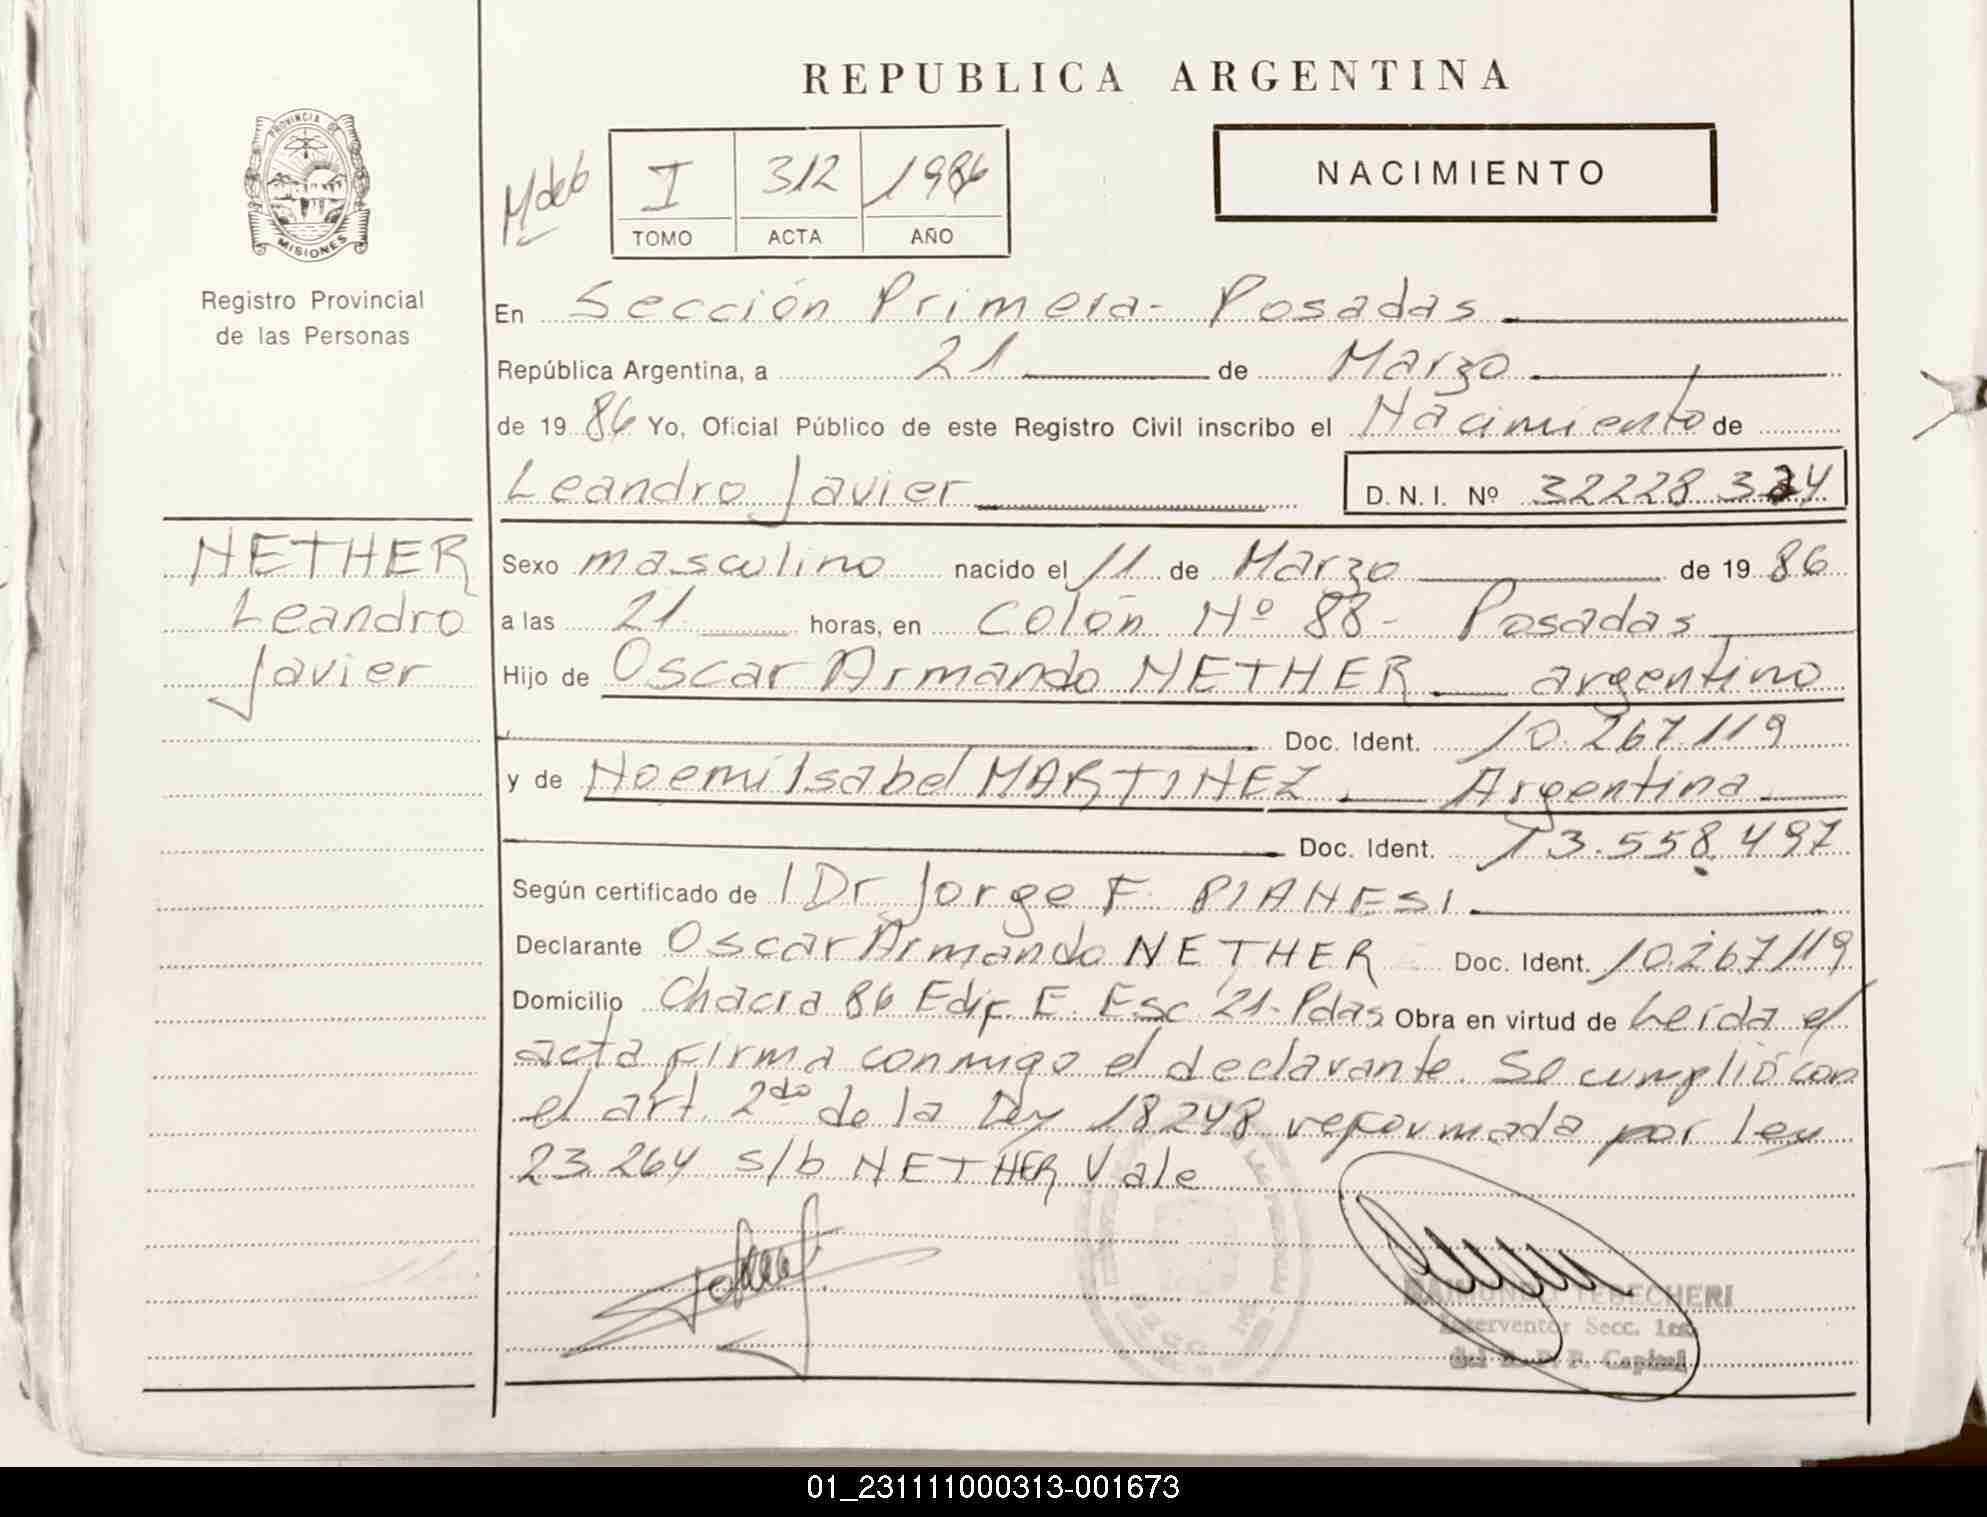 REPUBLICA ARGENTINA
NACIMIENTO
I 312 1986
TOMO ACTA AÑO
PROVINCIA DE
MISIONES
Registro Provincial
de las Personas
En Sección Primera - Posadas
República Argentina, a 21 de Marzo
de 19 86 Yo, Oficial Público de este Registro Civil inscribo el Nacimiento de
Leandro Javier D. N. I. Nº 32228 324
NETHER
Leandro
Javier
Sexo masculino nacido el 11 de Marzo de 19 86
a las 21 horas, en Colón Nº 88 - Posadas
Hijo de Oscar Armando NETHER argentino
Doc. Ident. 10.267.119
y de Noemi Isabel MARTINEZ Argentina
Doc. Ident. 13.558.497
Según certificado de Dr Jorge F. PIANESI
Declarante Oscar Armando NETHER Doc. Ident. 10.267119
Domicilio Chacra 86 Edif. E. Esc. 21 - Pdas, Obra en virtud de Leida el
acta firma conmigo el declarante. Se cumplió con
el art. 2do de la Ley 18248 reformada por ley
23.264 s/b NETHER Vale
RAIMUNDO TEBECHERI
Interventor Secc. 1ra.
del R. P. P. Capital
01_231111000313-001673